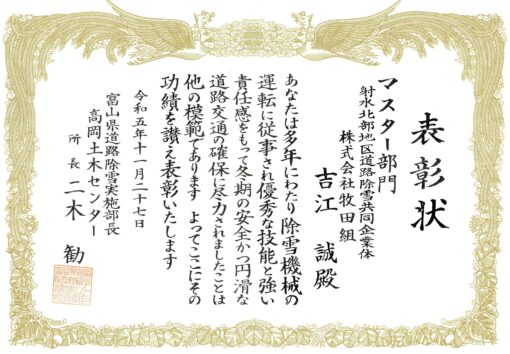 表彰状
マスター部門
射水北部地区道路除雪共同企業体
株式会社牧田組
吉江 誠殿
あなたは多年にわたり除雪機械の
運転に従事され優秀な技能と強い
責任感をもって冬期の安全かつ円滑な
道路交通の確保に尽力されましたことは
他の模範であります よってここにその
功績を讃え表彰いたします
令和五年十一月二十七日
富山県道路除雪実施部長
高岡土木センター
所長 二木 勧